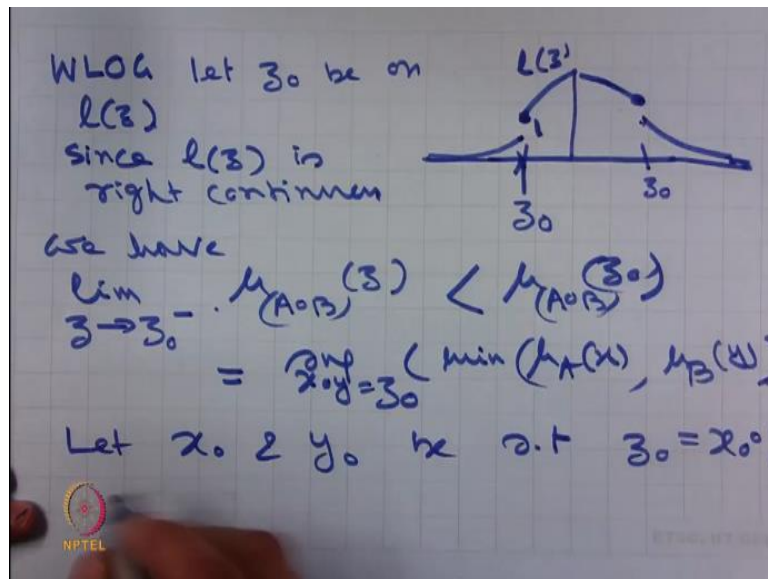 WLOG let z₀ be on
l(z)
since l(z) is
right continuous
we have
lim z→z₀⁻ . μ_(A∘B)(z) < μ_(A∘B)(z₀)
= sup x∘y=z₀ ( min (μ_A(x), μ_B(y)
Let x₀ & y₀ be s.t z₀ = x₀∘
l(z)
z₀
z₀
NPTEL